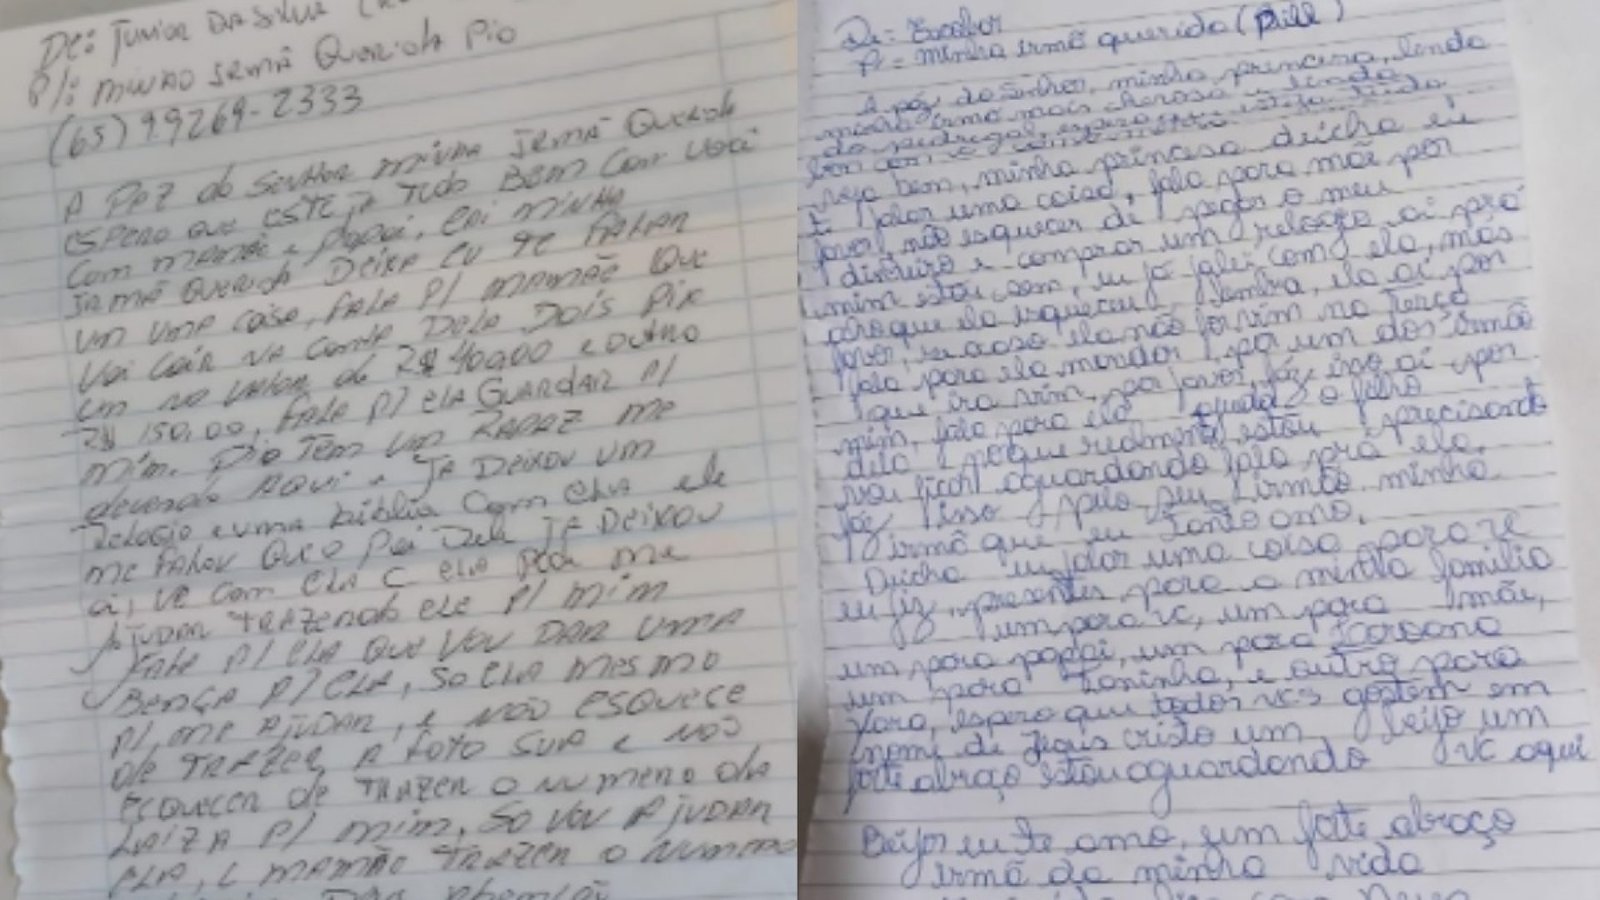 De: Junior da Silva
P/: minha irmã Querida Pio
(65) 99269-2333
A Paz do Senhor minha irmã Querida
espero que esteja tudo Bem Com você
Com mamãe e papai, minha
irmã Querida Deixa eu te falar
um uma coisa, fala P/ mamãe Que
Vai Cair na Conta Dela Dois Pix
um no valor de R$ 400,00 e outro
R$ 150,00, fala P/ ela Guardar P/
mim. Pio Tem um Rapaz me
devendo Aqui e Ja Deixou um
Relogio e uma biblia Com ela ele
me falou Que o Pai Dele Ja Deixou
ai, ve com ela
Ajudar trazendo ele P/ mim
fala P/ ela que vou Dar uma
Bença P/ ela, so ela mesmo
P/ me Ajudar, e não esquece
de trazer A foto sua e nós
esquecer de trazer o numero da
Laiza P/ mim, so vou Ajudar
ela, e mamãe trazer o numero
De: Escobar
P = minha irmã querida (
A paz do Senhor, minha princesa, linda
minha irmã mais cheirosa e linda
do pedregal, espero
bem com
seja bem, minha princesa deicha eu
t falar uma coisa, fala para mãe por
favor, não esquecer de pegar o meu
dinheiro e comprar um relogio ai pra
mim estou sem, eu já falei com ela, mas
acho que ela esqueceu, lembra, ela ai por
favor, se caso ela não for vim na terça
fala para ela mandar por um dos irmão
que ira vim, por favor, faz isso ai por
mim, fala para ela ajudar o filho
dela porque realmente estou precisando
vou ficar aguardando fala pra ela.
faz isso pelo seu irmão minha
irmã que eu tanto amo.
Deicha eu falar uma coisa para vc
eu fiz presentes para a minha familia
um para vc, um para mãe,
um para papai, um para
um para Toninho, e outro para
Yara, espero que todos vcs gostem em
nome de Jesus cristo um beijo um
forte abraço estou aguardando vc aqui
Beijos eu te amo, um forte abraço
irmã da minha vida